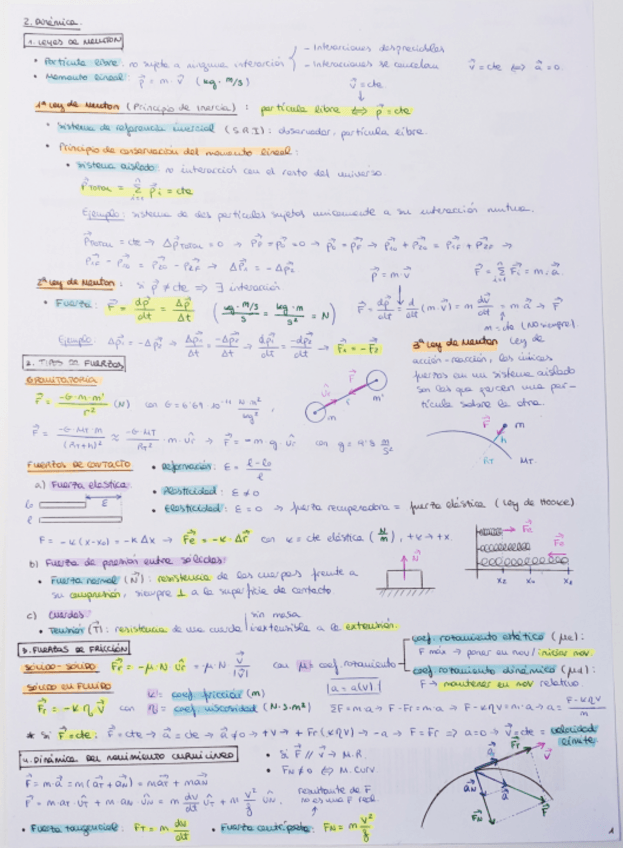 2. Dinámica.
1. LEYES DE NEWTON
• Partícula libre: no sujeta a ninguna interacción { - Interacciones despreciables
- Interacciones se cancelan v⃗ = cte ⇔ a⃗ = 0
• Momento lineal: p⃗ = m · v⃗ (kg · m/s)
v⃗ = cte
↓
1ª Ley de Newton (Principio de inercia) : partícula libre ⇔ p⃗ = cte
• Sistema de referencia inercial (S.R.I) : observador, partícula libre.
• Principio de conservación del momento lineal :
• Sistema aislado: no interacción con el resto del universo.
P⃗TOTAL = Σ p⃗i = cte
Ejemplo: sistema de dos partículas sujetas únicamente a su interacción mutua.
P⃗TOTAL = cte → Δp⃗TOTAL = 0 →
2ª Ley de Newton : si p⃗ ≠ cte ⇒ ∃ interacción
p⃗ = m v⃗
F⃗ = Σ F⃗i = m · a⃗
• Fuerza: F⃗ = dp⃗/dt = Δp⃗/Δt (kg · m/s / s = kg · m / s² = N)
F⃗ = dp⃗/dt = d/dt (m · v⃗) = m dv⃗/dt = m a⃗ → F⃗
m = cte (NO siempre).
3ª Ley de Newton Ley de
acción-reacción, las únicas
fuerzas en un sistema aislado
son las que ejercen una par-
tícula sobre la otra.
2. TIPOS DE FUERZAS
GRAVITATORIA
F⃗ = -G · m · m' / r² (N) con G = 6'67 · 10⁻¹¹ N · m² / kg²
con g = 9'8 m/s²
FUERZAS DE CONTACTO
• Deformación: ε = l - l₀ / l
a) Fuerza elástica
• Plasticidad: ε ≠ 0
• Elasticidad: ε = 0 → fuerza recuperadora = fuerza elástica (Ley de Hooke)
F = -k (x-x₀) = -k Δx → F⃗e = -k · Δr⃗ con k = cte elástica (N/m), +k → +x.
b) Fuerza de presión entre sólidos
• Fuerza normal (N⃗) : resistencia de los cuerpos frente a
su compresión, siempre ⊥ a la superficie de contacto
c) Cuerdas
sin masa
• Tensión (T⃗) : resistencia de una cuerda inextensible a la extensión.
3. FUERZAS DE FRICCIÓN
SÓLIDO - SÓLIDO F⃗r = -μ · N u⃗r = μ · N v⃗/|v⃗| con μ: coef. rozamiento
coef. rozamiento estático (μe) :
F máx → poner en mov / iniciar mov.
coef. rozamiento dinámico (μd) :
F → mantener en mov relativo.
SÓLIDO EN FLUIDO
F⃗r = -k η v⃗ con k = coef. fricción (m)
η = coef. viscosidad (N · s · m²)
a = a(v)
ΣF = m · a → F - Fr = m · a → F - kηv = m · a → a = F - kηv / m
* Si F⃗ = cte: → a⃗ ≠ 0 → +v → + Fr (kηv) → -a → F = Fr ⇒ a = 0 → v⃗ = cte = velocidad
límite.
4. DINÁMICA DEL MOVIMIENTO CURVILÍNEO
• Si F⃗ // v⃗ → M.R.
• FN ≠ 0 ⇔ M. Curv.
F⃗ = m · a⃗ = m (a⃗T + a⃗N) = m a⃗T + m a⃗N
resultante de F
no es una F real.
F⃗ = m · aT · u⃗T + m aN · u⃗N = m dv/dt u⃗T + m v²/ρ u⃗N.
• Fuerza tangencial: FT = m dv/dt • Fuerza centrípeta: FN = m v²/ρ